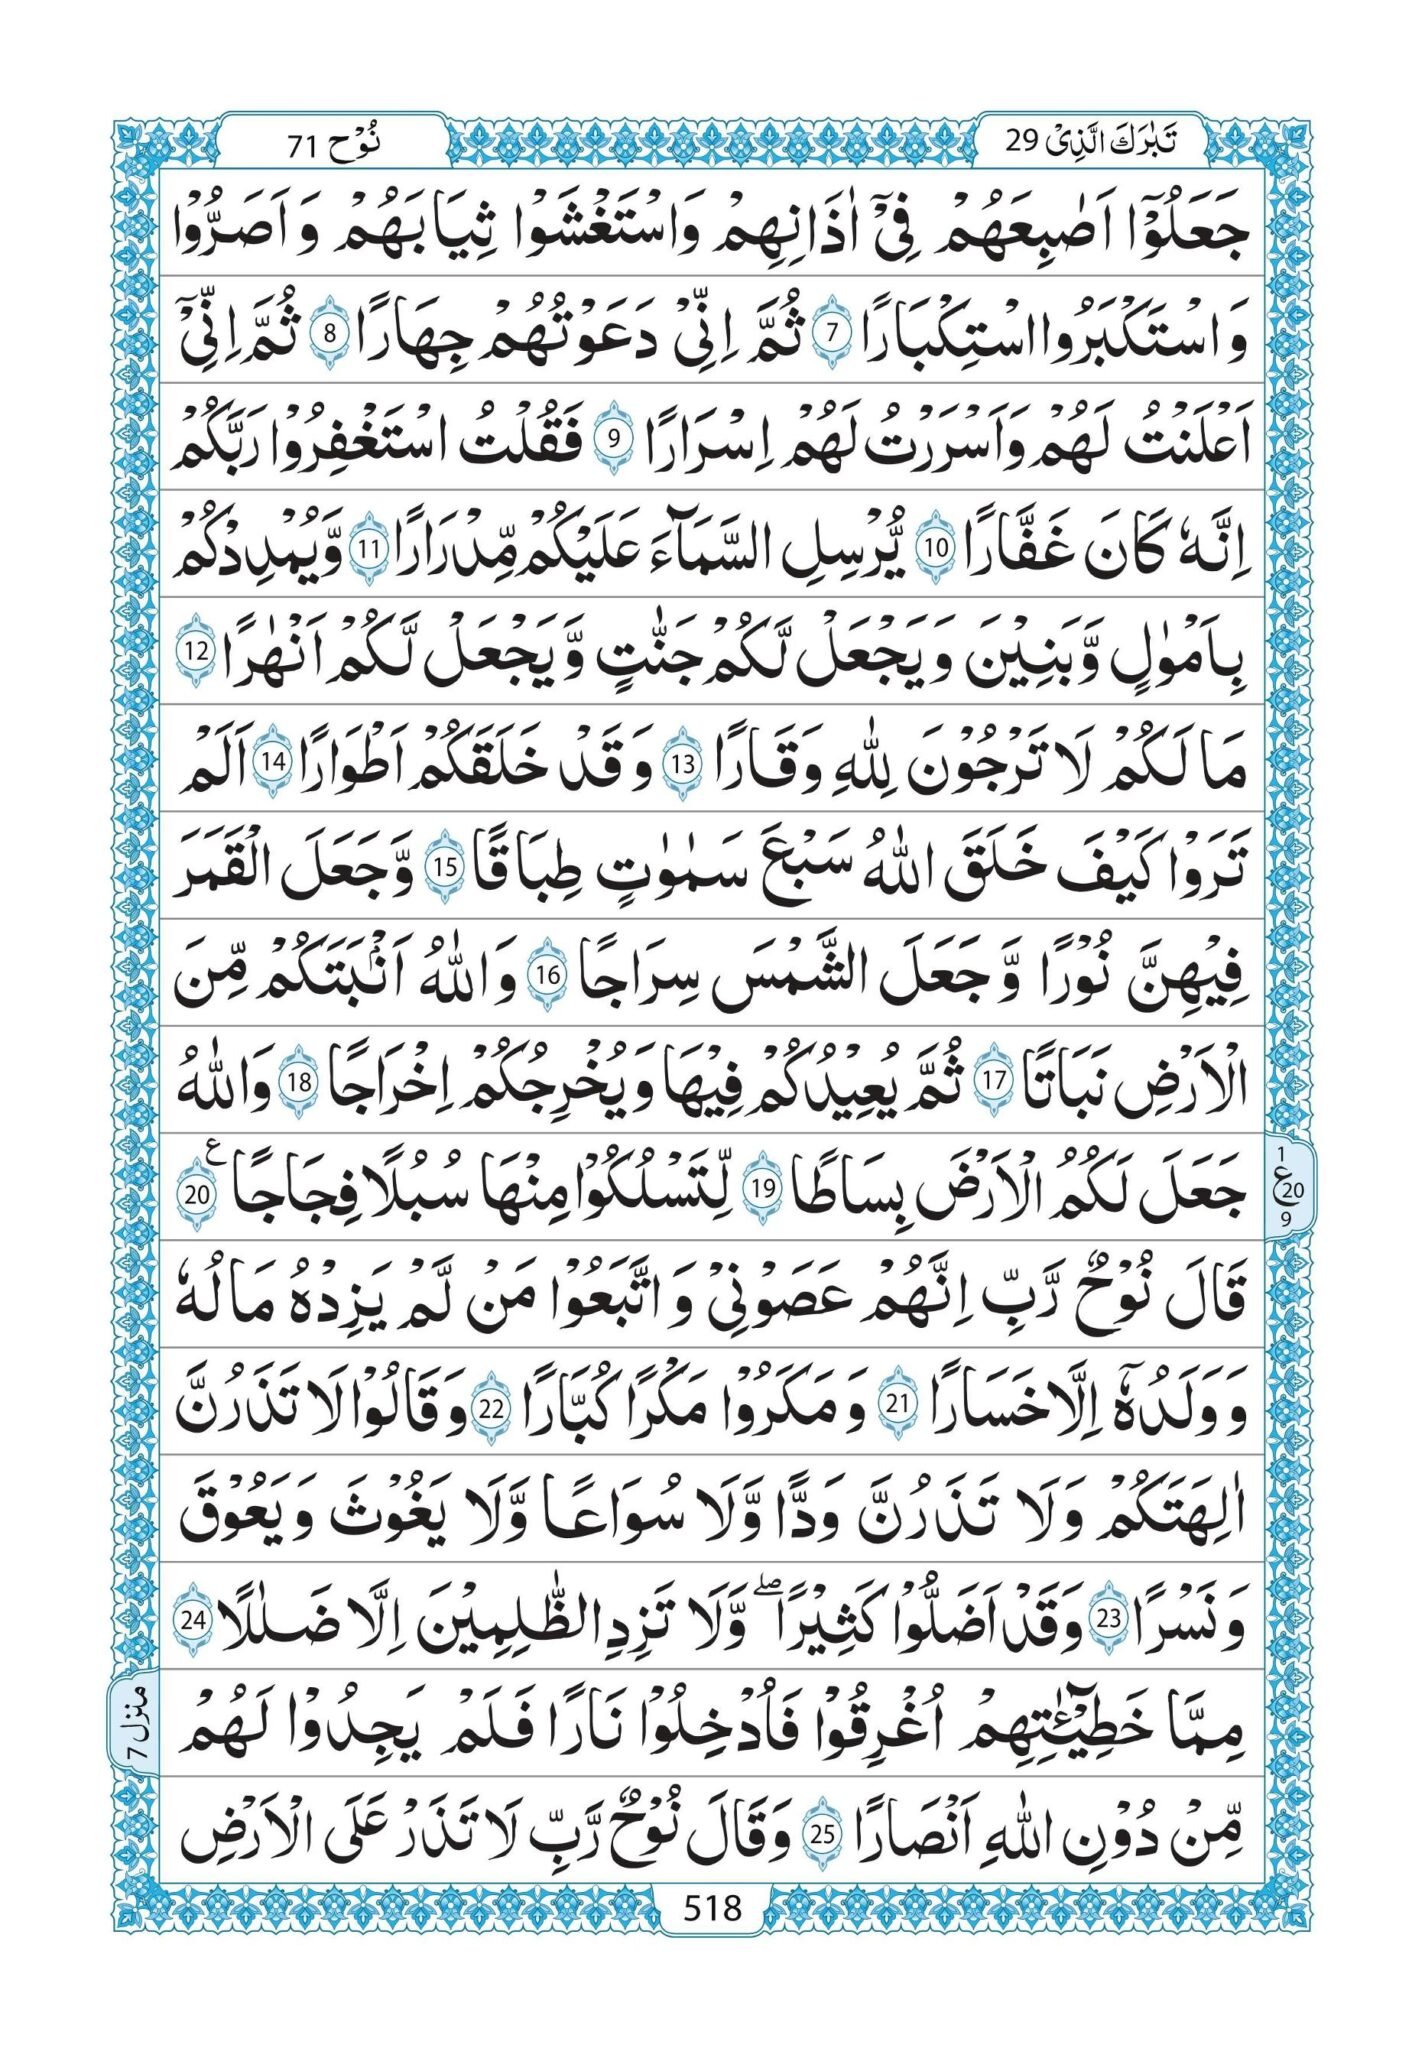 تَبٰرَكَ الَّذِیْ 29
نُوْح 71
جَعَلُوْۤا اَصَابِعَهُمْ فِیْۤ اٰذَانِهِمْ وَاسْتَغْشَوْا ثِیَابَهُمْ وَ اَصَرُّوْا
وَاسْتَكْبَرُوا اسْتِكْبَارًا 7 ثُمَّ اِنِّیْ دَعَوْتُهُمْ جِهَارًا 8 ثُمَّ اِنِّیْۤ
اَعْلَنْتُ لَهُمْ وَاَسْرَرْتُ لَهُمْ اِسْرَارًا 9 فَقُلْتُ اسْتَغْفِرُوْا رَبَّكُمْ
اِنَّهٗ كَانَ غَفَّارًا 10 یُّرْسِلِ السَّمَآءَ عَلَیْكُمْ مِّدْرَارًا 11 وَّیُمْدِدْكُمْ
بِاَمْوٰلٍ وَّبَنِیْنَ وَیَجْعَلْ لَّكُمْ جَنّٰتٍ وَّیَجْعَلْ لَّكُمْ اَنْهٰرًا 12
مَا لَكُمْ لَا تَرْجُوْنَ لِلّٰهِ وَقَارًا 13 وَقَدْ خَلَقَكُمْ اَطْوَارًا 14 اَلَمْ
تَرَوْا كَیْفَ خَلَقَ اللّٰهُ سَبْعَ سَمٰوٰتٍ طِبَاقًا 15 وَّجَعَلَ الْقَمَرَ
فِیْهِنَّ نُوْرًا وَّجَعَلَ الشَّمْسَ سِرَاجًا 16 وَاللّٰهُ اَنْۢبَتَكُمْ مِّنَ
الْاَرْضِ نَبَاتًا 17 ثُمَّ یُعِیْدُكُمْ فِیْهَا وَیُخْرِجُكُمْ اِخْرَاجًا 18 وَاللّٰهُ
جَعَلَ لَكُمُ الْاَرْضَ بِسَاطًا 19 لِّتَسْلُكُوْا مِنْهَا سُبُلًا فِجَاجًا ع 20
1
ع 20
9
قَالَ نُوْحٌ رَّبِّ اِنَّهُمْ عَصَوْنِیْ وَاتَّبَعُوْا مَنْ لَّمْ یَزِدْهُ مَالُهٗ
وَوَلَدُهٗۤ اِلَّا خَسَارًا 21 وَمَكَرُوْا مَكْرًا كُبَّارًا 22 وَقَالُوْا لَا تَذَرُنَّ
اٰلِهَتَكُمْ وَلَا تَذَرُنَّ وَدًّا وَّلَا سُوَاعًا وَّلَا یَغُوْثَ وَیَعُوْقَ
وَنَسْرًا 23 وَقَدْ اَضَلُّوْا كَثِیْرًاۖ وَّلَا تَزِدِ الظّٰلِمِیْنَ اِلَّا ضَلٰلًا 24
مِمَّا خَطِیْٓـٰٔتِهِمْ اُغْرِقُوْا فَاُدْخِلُوْا نَارًا فَلَمْ یَجِدُوْا لَهُمْ
منزل 7
مِّنْ دُوْنِ اللّٰهِ اَنْصَارًا 25 وَقَالَ نُوْحٌ رَّبِّ لَا تَذَرْ عَلَی الْاَرْضِ
518